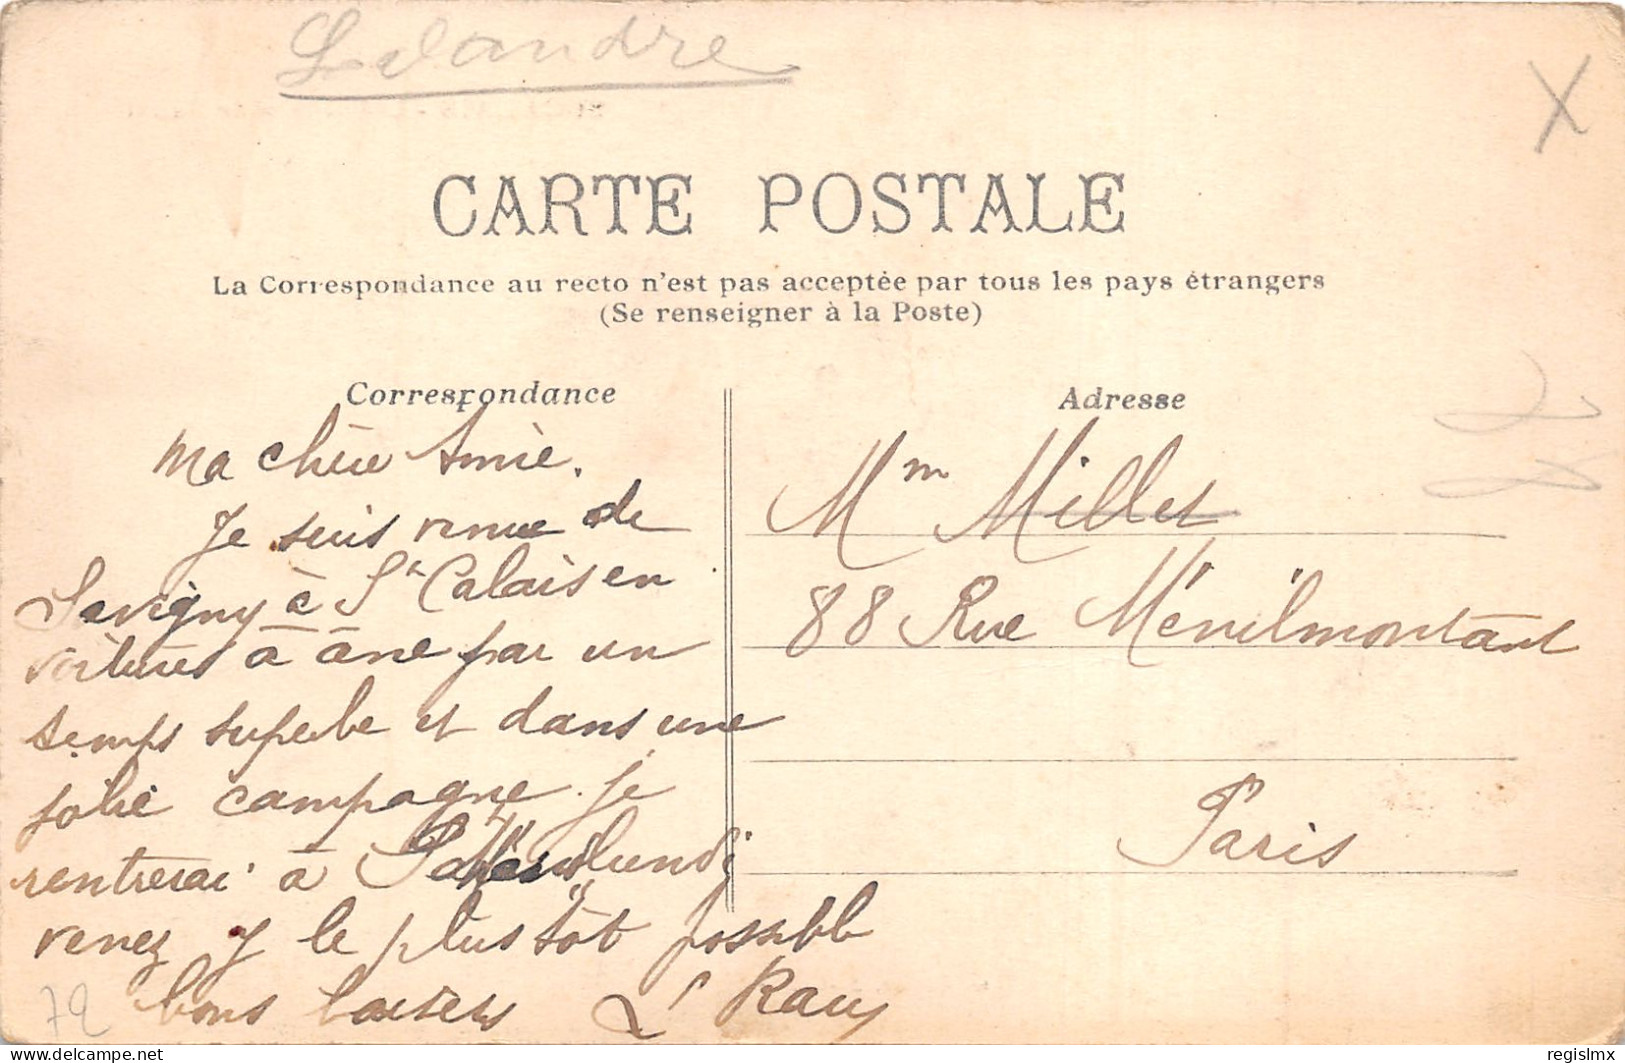 Lalandre
X
CARTE POSTALE
La Correspondance au recto n'est pas acceptée par tous les pays étrangers
(Se renseigner à la Poste)
Correspondance
ma chère Amie.
Je suis venue de
Savigny à St Calais en
voitures à âne par un
temps superbe et dans une
jolie campagne. je
rentrerai à lundi
venez y le plus tôt possible
bons baisers L Rauy
72
Adresse
Mm Millet
88 Rue Ménilmontant
Paris
delcampe.net
regislmx